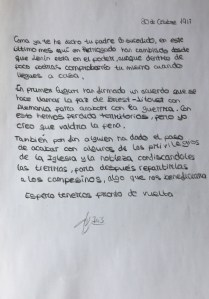 30 de Octubre 1917
Como ya te ha dicho tu padre lo sucedido, en este
último mes aquí en Petrogrado han cambiado desde
que Lenin está en el poder, aunque dentro de
poco podrás comprobarlo tu mismo cuando
llegues a casa.
En primer lugar han firmado un acuerdo que se
hace llamar la paz de Brest-Litovsk con
Alemania para acabar con la guerra. Con
esto hemos perdido territorios, pero yo
creo que valdrá la pena.
También por fin alguien ha dado el paso
de acabar con algunos de los privilegios
de la Iglesia y la nobleza confiscandoles
las tierras, para después repartirlas
a los campesinos, algo que nos beneficiara
Espero tenerte pronto de vuelta